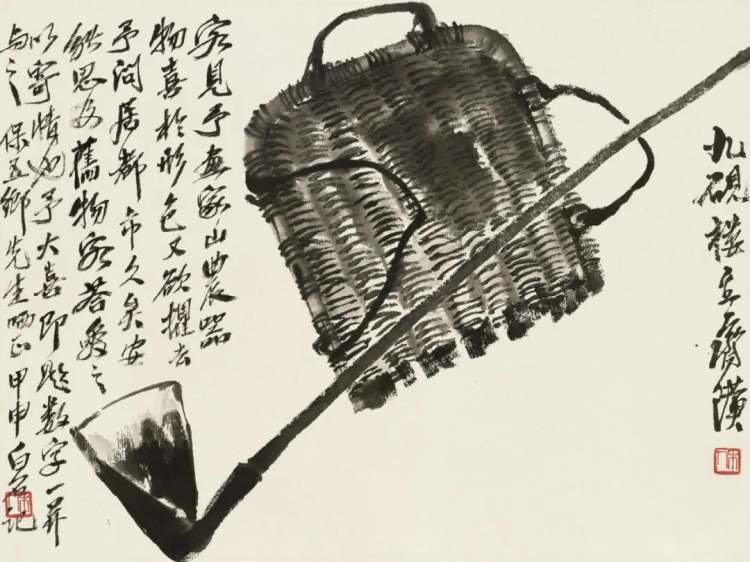 九硯樓主齊璜
客見予画家山農器
物喜於形色又欲攫去
予问居都市久矣安
能思及舊物客荅愛之
以寄情也予大喜即题数字一并
与之保五鄉先生哂正甲申白石记